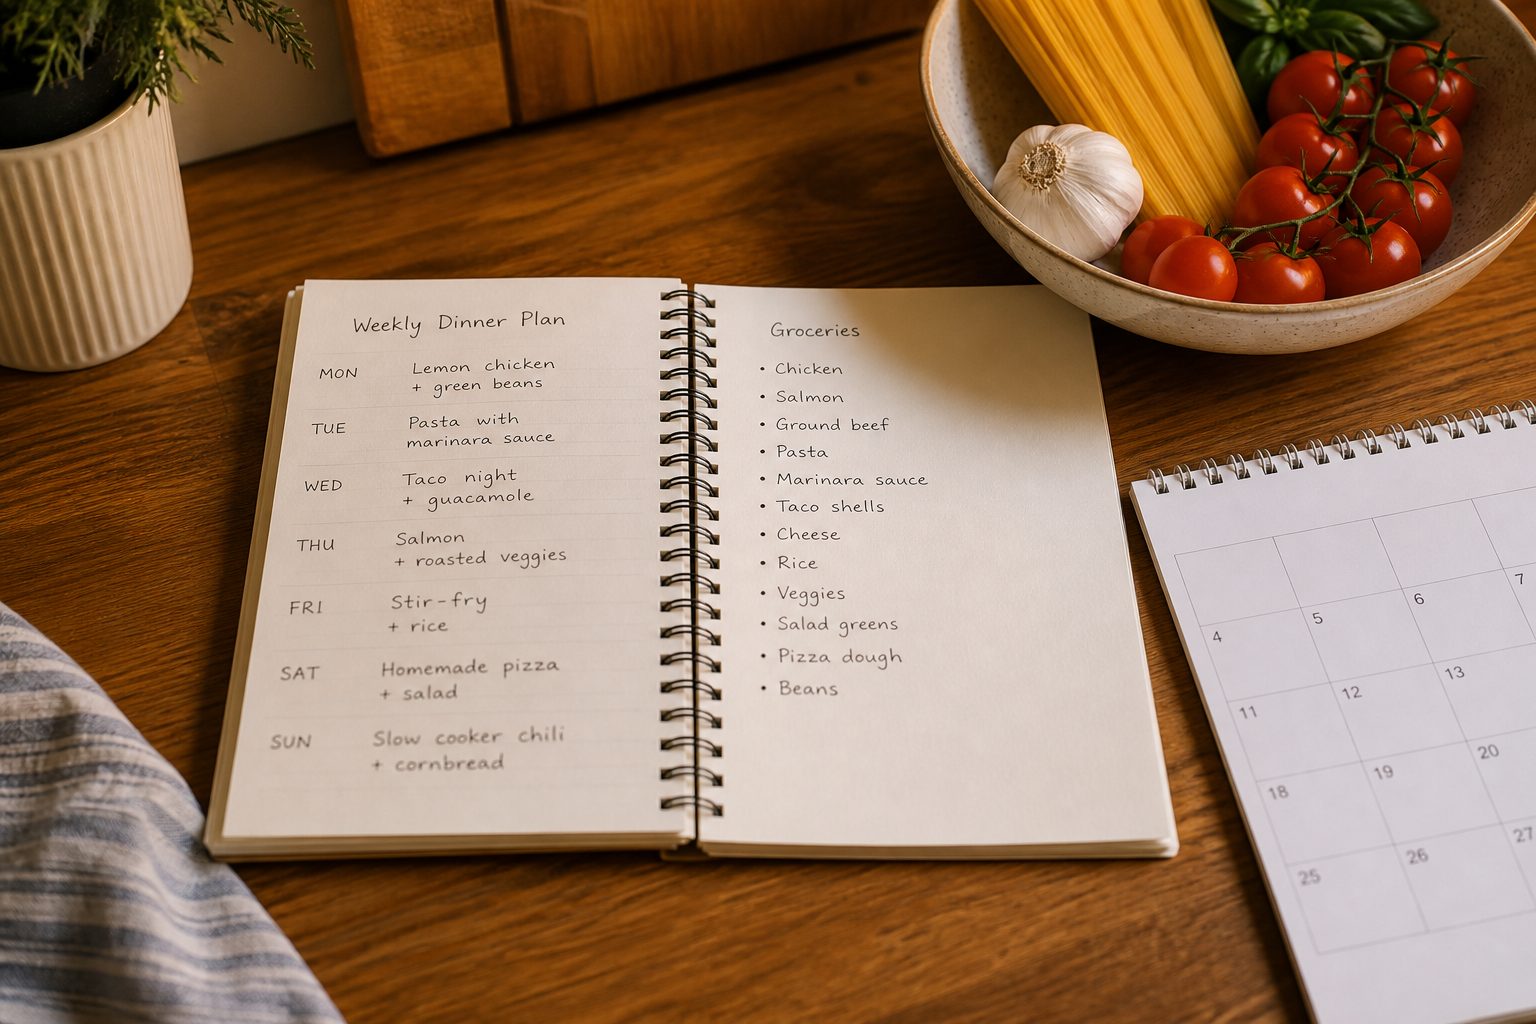 Weekly Dinner Plan
MON
Lemon chicken
+ green beans
TUE
Pasta with
marinara sauce
WED
Taco night
+ guacamole
THU
Salmon
+ roasted veggies
FRI
Stir-fry
+ rice
SAT
Homemade pizza
+ salad
SUN
Slow cooker chili
+ cornbread
Groceries
• Chicken
• Salmon
• Ground beef
• Pasta
• Marinara sauce
• Taco shells
• Cheese
• Rice
• Veggies
• Salad greens
• Pizza dough
• Beans
4 5 6 7
11 12 13
18 19 20
25 26 27